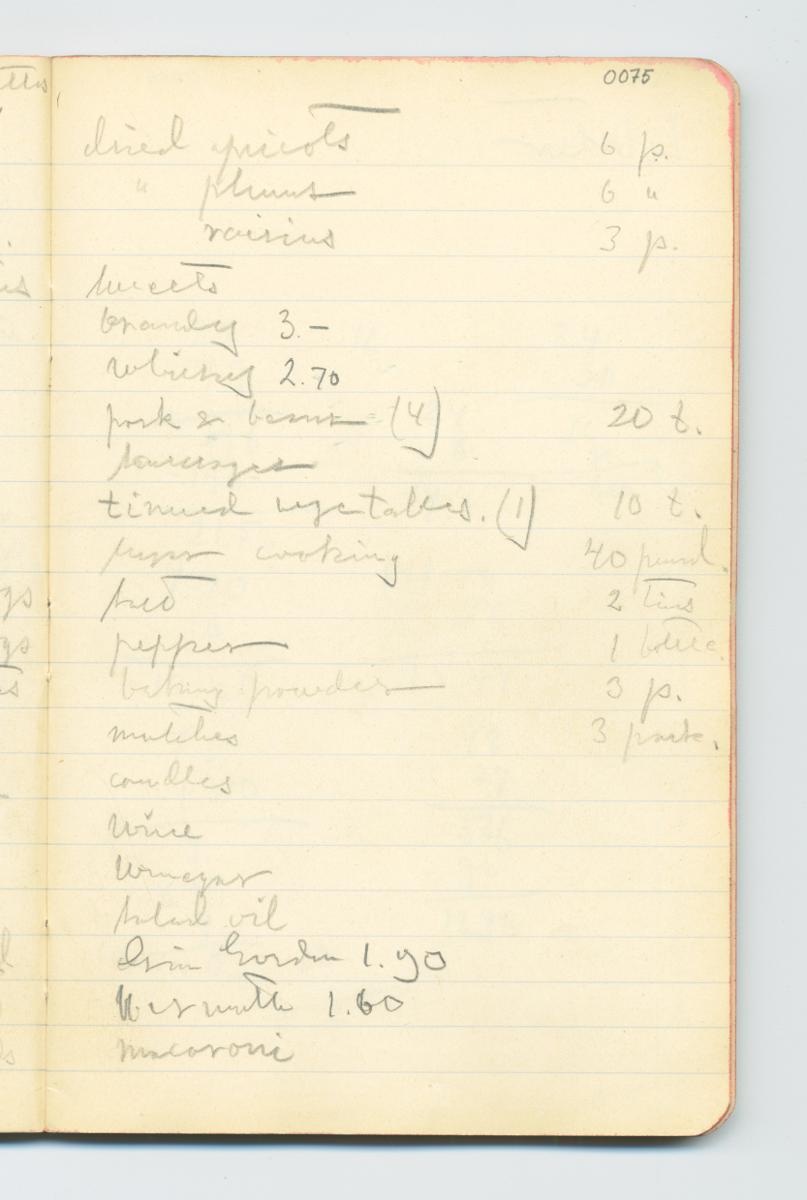 0075
dried apricots 6 p.
" plums 6 "
raisins 3 p.
sweets
brandy 3.–
whiskey 2.70
pork & beans (4) 20 t.
sausages
tinned vegetables. (1) 10 t.
sugar cooking 40 pound.
salt 2 tins
pepper 1 bottle.
baking powder 3 p.
matches 3 pack.
candles
wine
vinegar
salad oil
Gin Gordon 1.90
Vermuth 1.60
macaroni